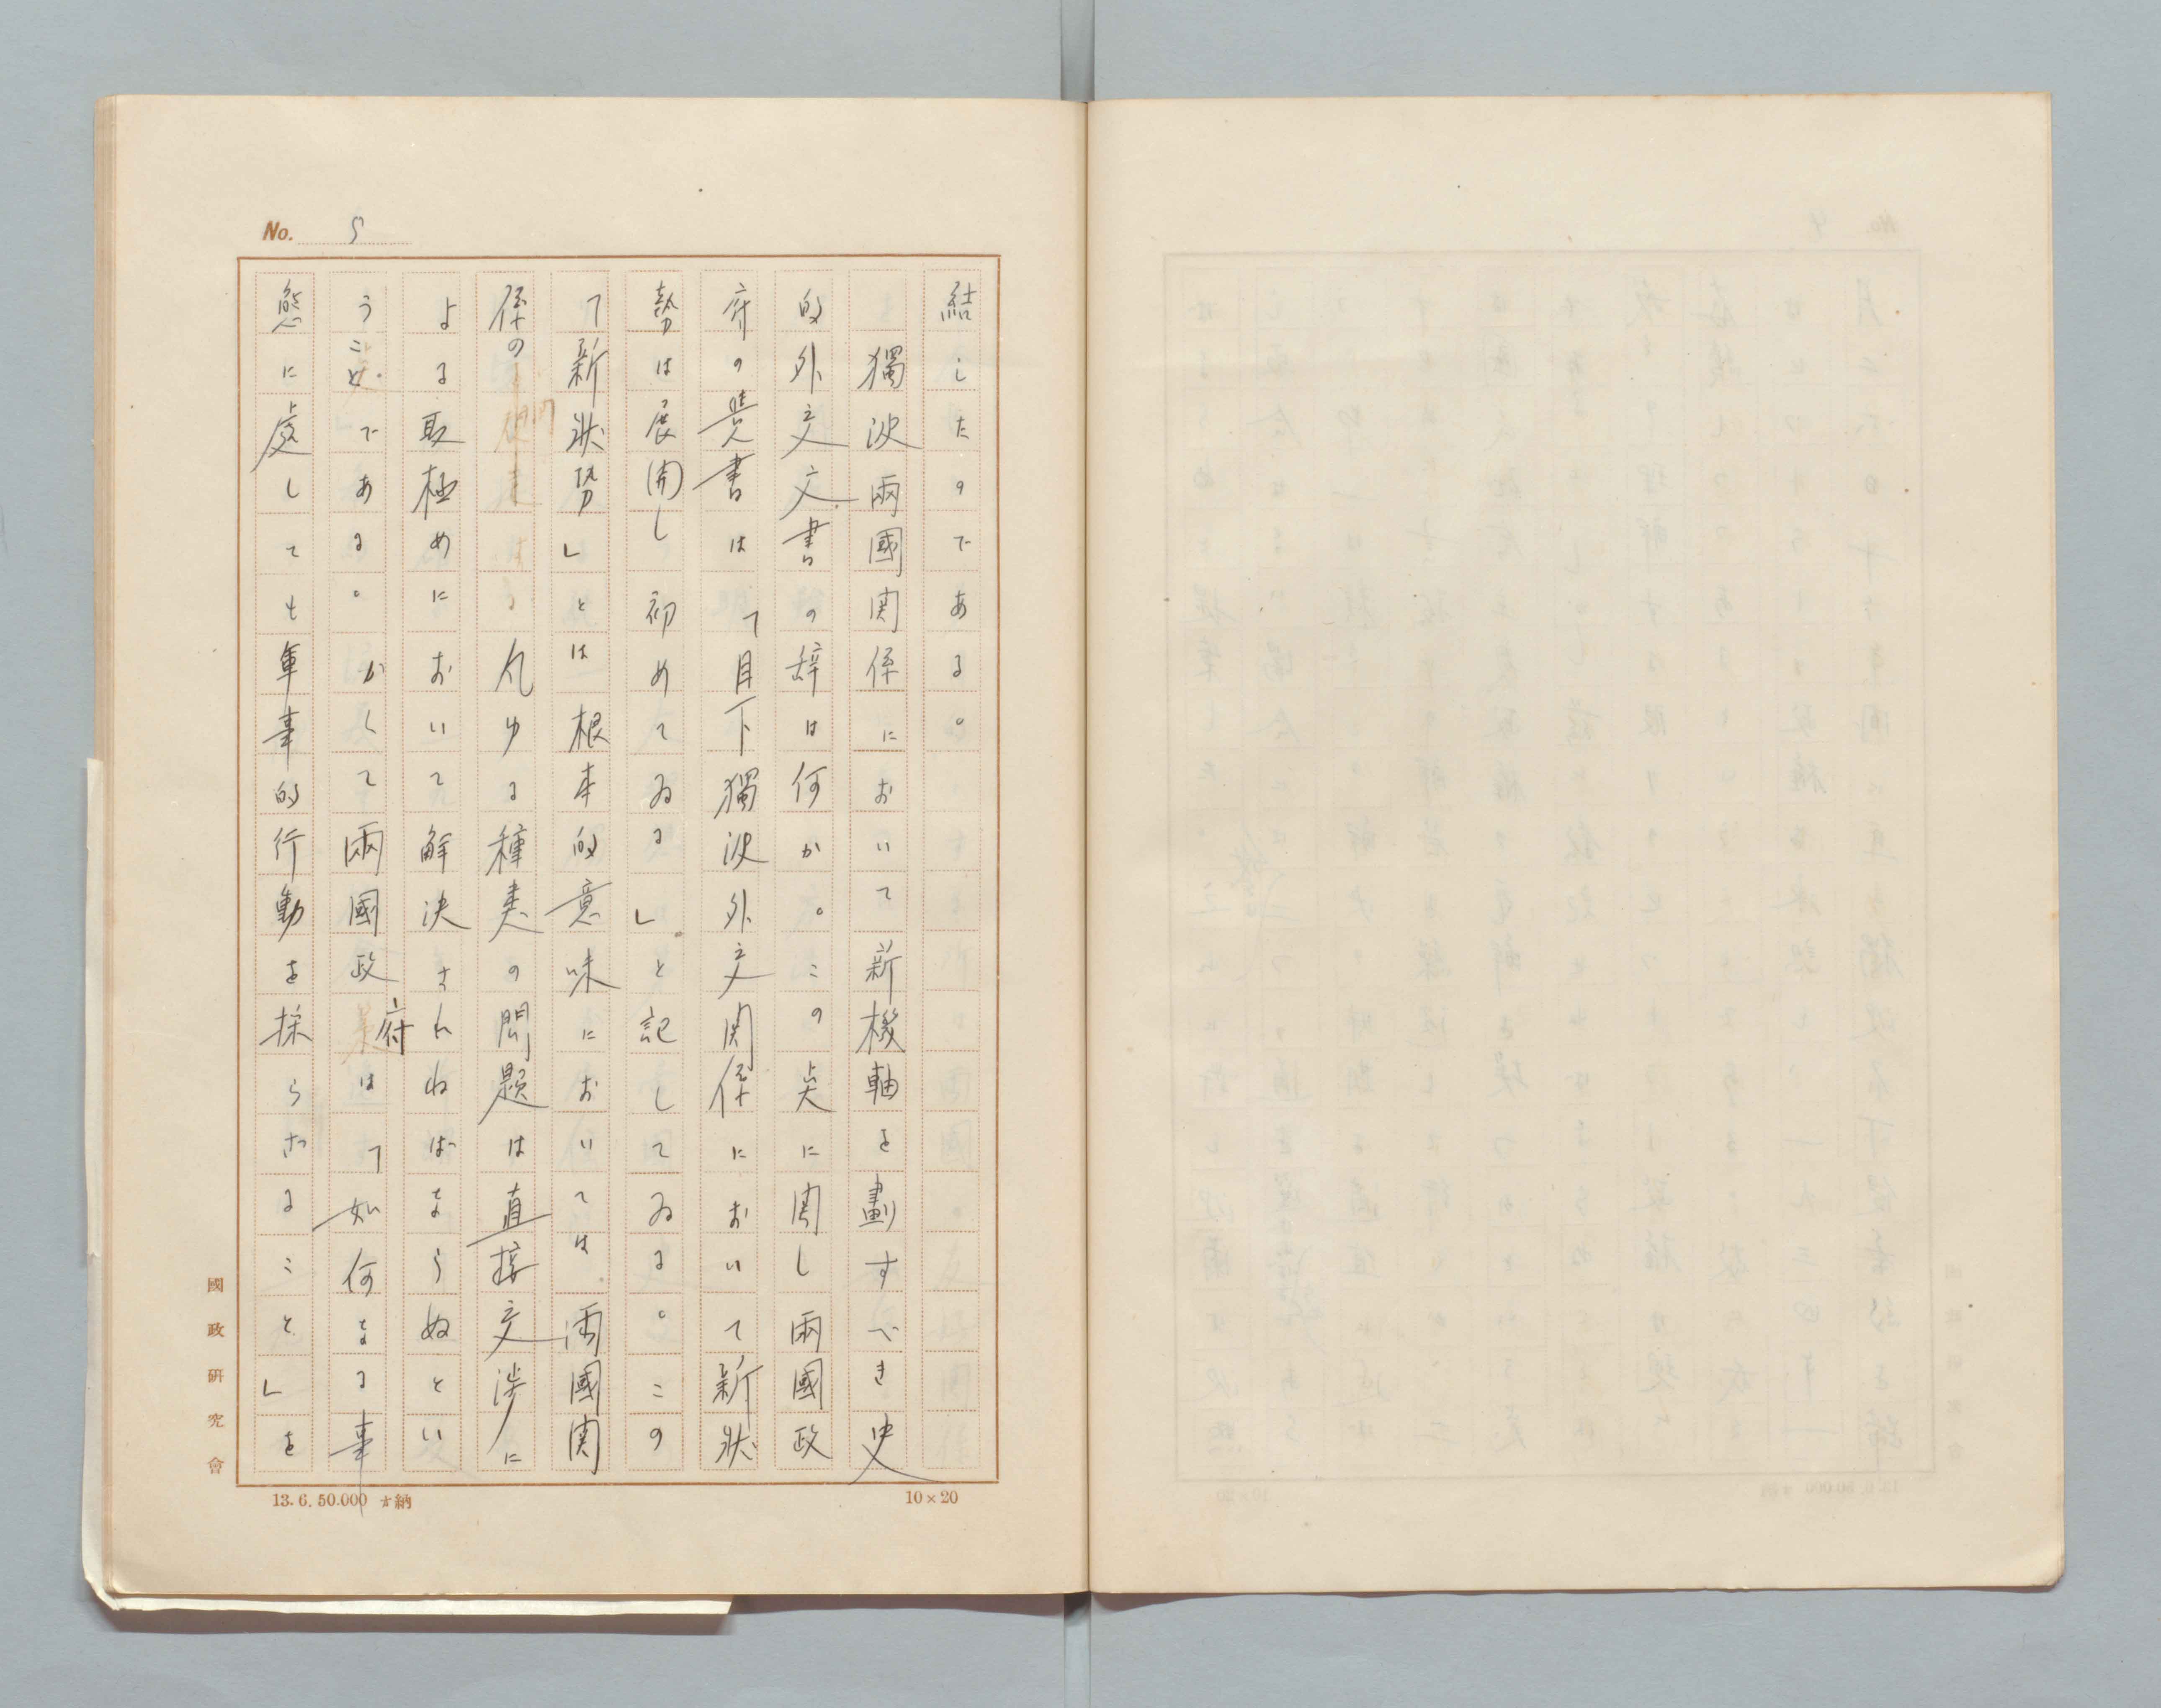 No. 5
結したのである。
獨波兩國関係において新機軸を劃すべき史
的外交文書の辞は何か。この点に関し兩國政
府の覚書は「目下獨波外交関係において新狀
勢は展開し初めてゐる」と記してゐる。この
「新狀勢」とは根本的意味においては兩國関
係の凡ゆる種類の問題は直接交渉に
よる取極めにおいて解決されねばならぬとい
うことである。かくて兩國政府は「如何なる事
態に處しても軍事的行動を採らざること」を
國政研究會
13.6.50.000 納
10×20